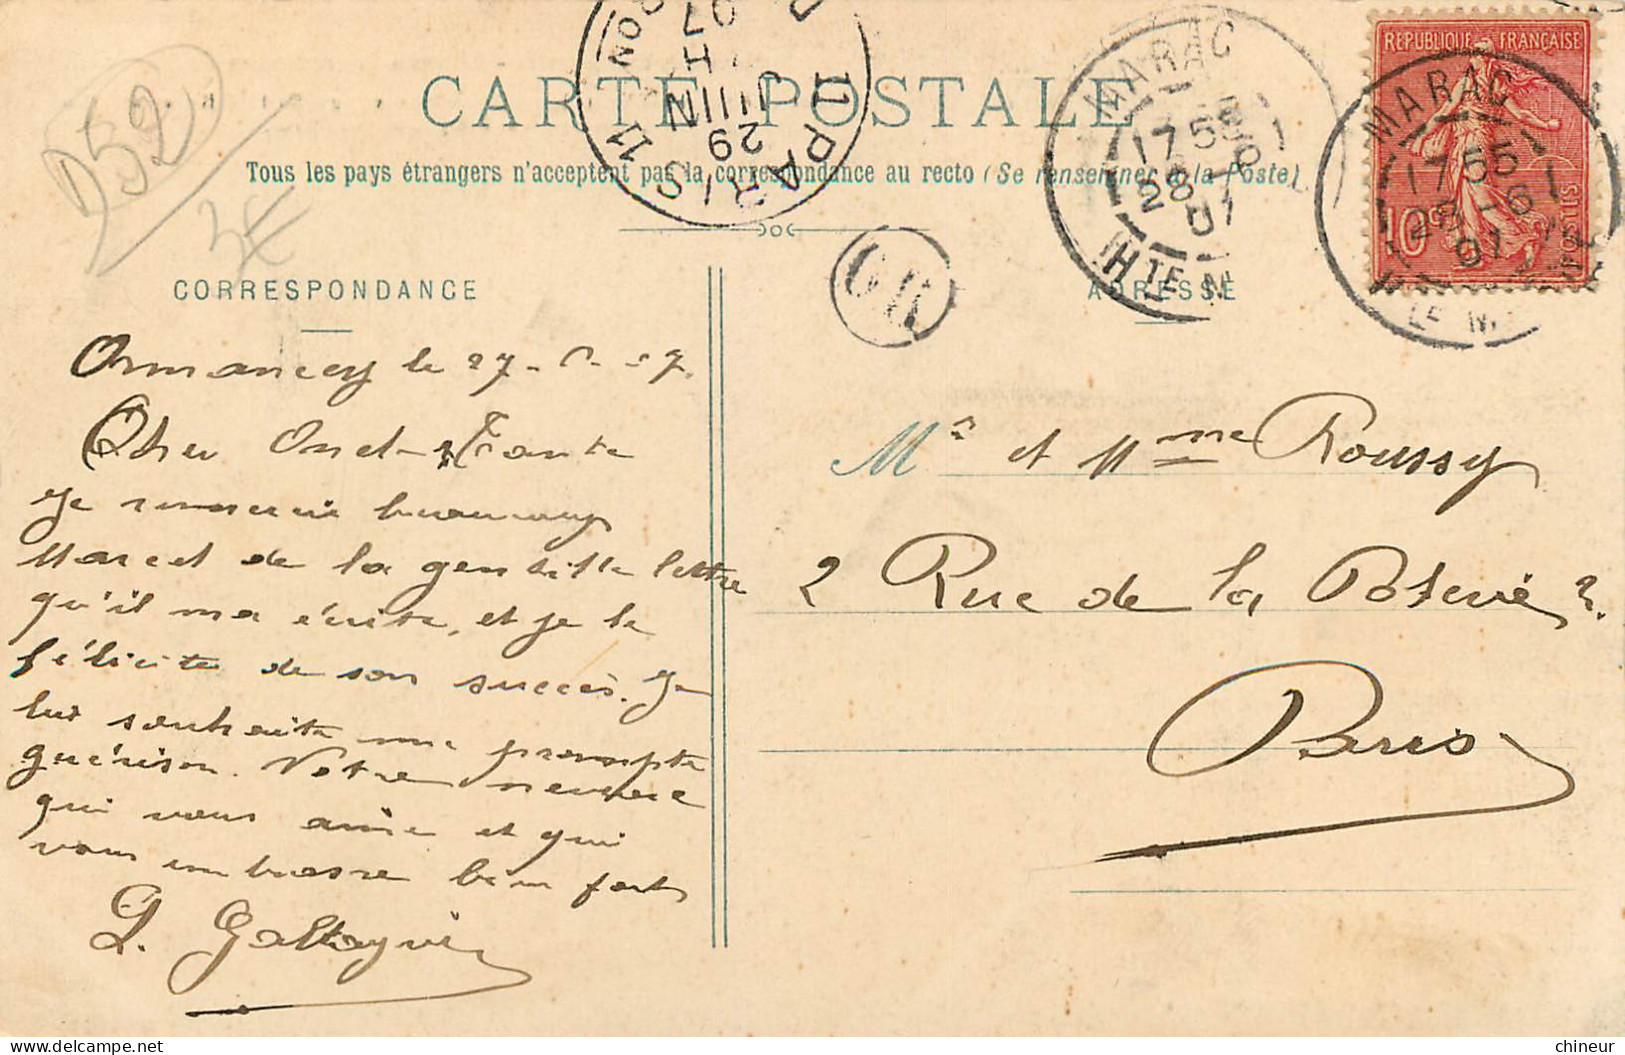 CARTE POSTALE
Tous les pays étrangers n'acceptent pas la correspondance au recto (Se renseigner à la Poste)
CORRESPONDANCE
ADRESSE
REPUBLIQUE FRANÇAISE
10c
POSTES
MARAC
1755
28 -6
07
HTE MARNE
MARAC
1755
28 -6
07
HTE M
11 PARIS 11
29
JUIN
H
07
OR
D52
3E
Ormancey le 27-6-07.
Cher Oncle, Tante
Je remercie beaucoup
Marcel de la gentille lettre
qu'il ma écrite, et je le
félicite de son succès. Je
lui souhaite une prompte
guérison. Votre neveu
qui vous aime et qui
vous embrasse bien fort
Mr et Mme Roussy
2 Rue de la Poterie 2.
Paris
chineur